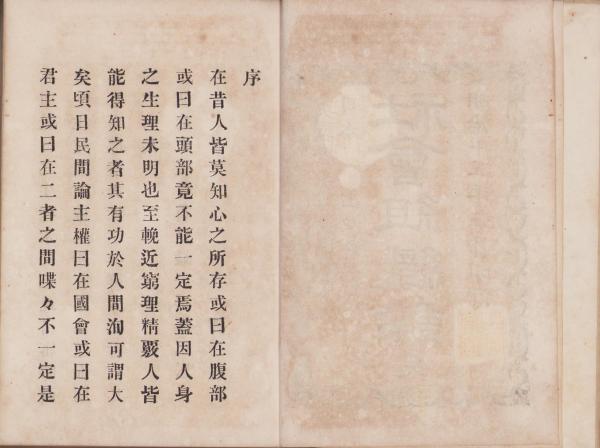 序
在昔人皆莫知心之所存或曰在腹部
或曰在頭部竟不能一定焉蓋因人身
之生理未明也至輓近窮理精覈人皆
能得知之者其有功於人間洵可謂大
矣頃日民間論主權曰在國會或曰在
君主或曰在二者之間喋々不一定是